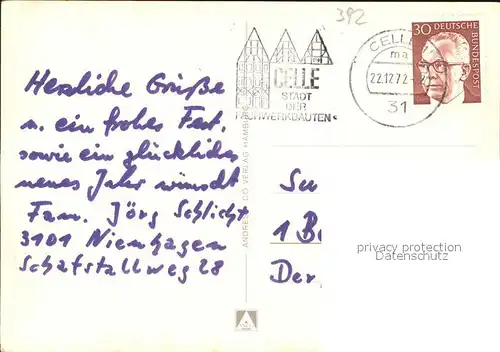 392
30 DEUTSCHE
BUNDESPOST
CELLE
ma
22.12.72
31
CELLE
STADT
DER
FACHWERKBAUTEN
Herzliche Grüße
u. ein frohes Fest,
sowie ein glückliches
neues Jahr wünscht
Fam. Jörg Schlicht
3101 Nienhagen
Schafstallweg 28
VERLAG HAMBURG
Su
1 B
Der
privacy protection
Datenschutz